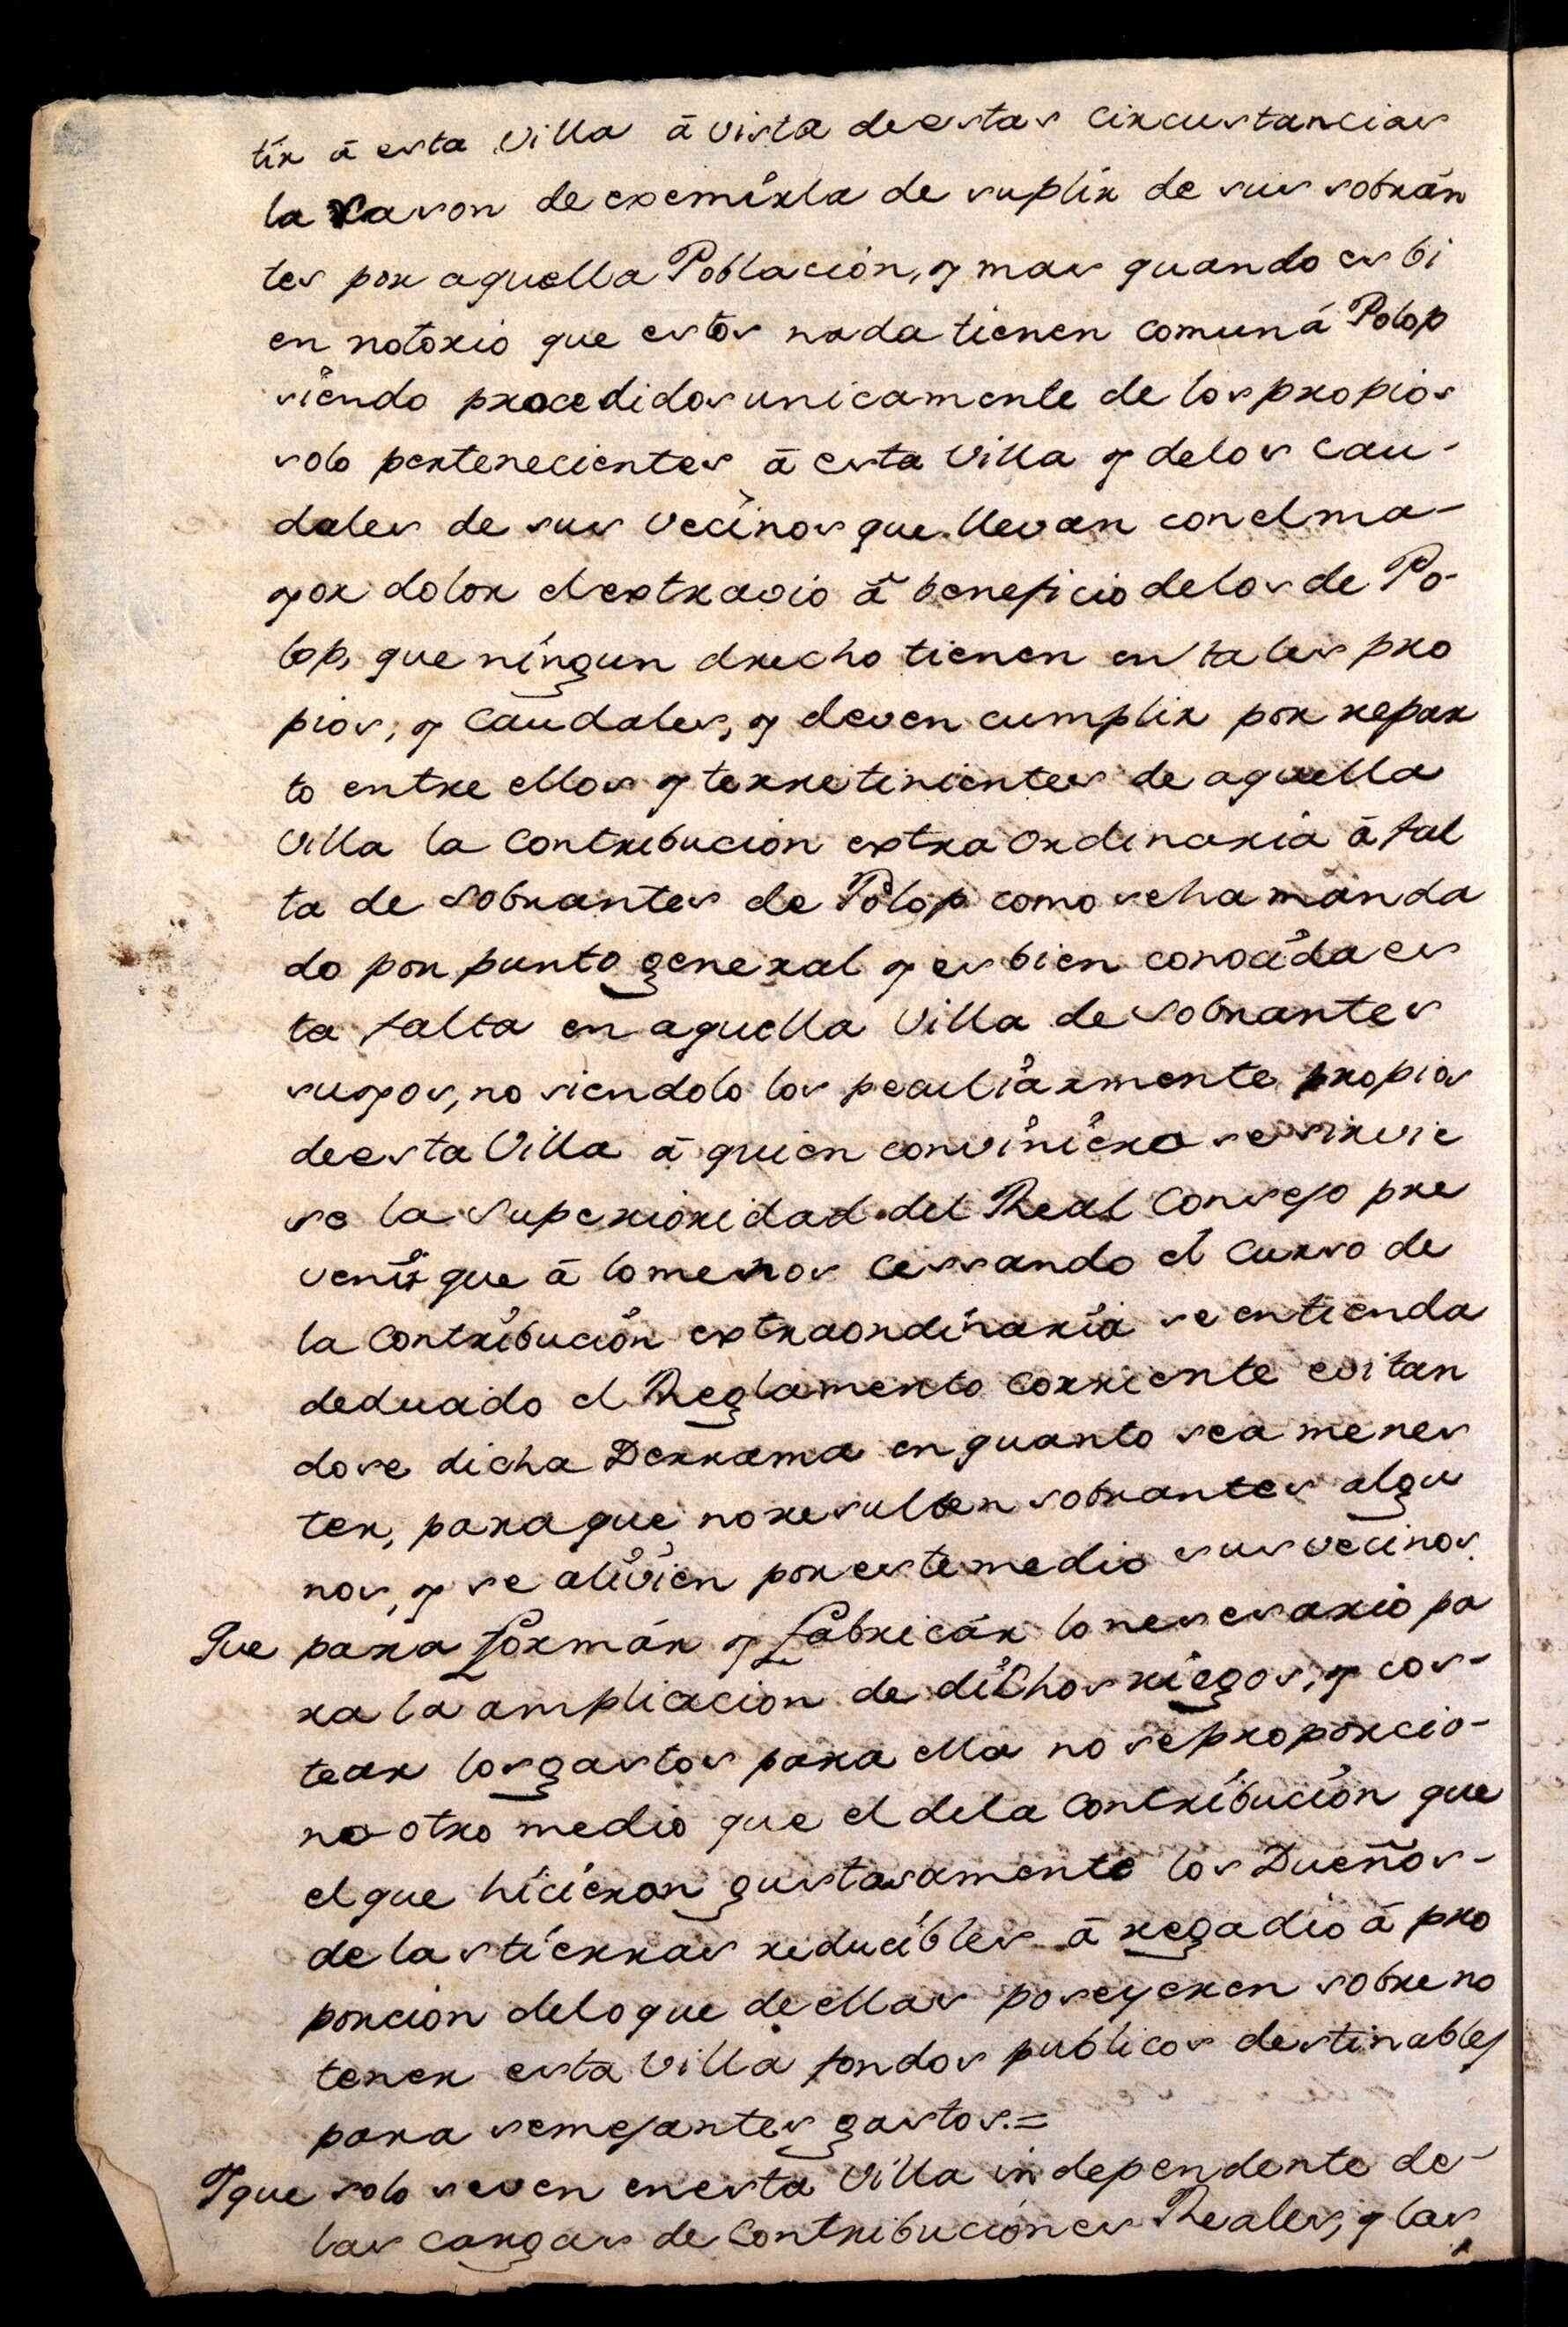 tir á esta Villa á vista deestas circustancias
la rason de exemirla de suplir de sus sobrán
tes por aquella Poblacion, y mas quando es bi
en notorio que estos nada tienen comun á Polop
siendo procedidos unicamente de los propios
solo pertenecientes á esta Villa y delos cau-
dales de sus vecinos que llevan con el ma-
yor dolor el extravio á beneficio delos de Po-
lop, que ningun drecho tienen en tales pro
pios, y caudales, y deven cumplir por repar
to entre ellos y terretinientes de aquella
Villa la Contribucion extra ordinaria á fal
ta de sobrantes de Polop como se ha manda
do por punto general y es bien conocida es
ta falta en aquella Villa de sobrantes
suyos, no siendolo los peculiarmente propios
deesta Villa á quien conviniera se sirvie
se la superioridad del Real Consejo pre
venir que á lo menos cessando el curso de
la Contribución extraordinaria se entienda
deduado el Reglamento corriente evitan
dose dicha Derrama en quanto sea menes
ter, para que no resulten sobrantes algu
nos, y se alivien por este medio sus vecinos.
Que para formár y fabricár lo nesesario pa
ra la ampliacion de dichos riegos, y cos-
tear los gastos para ella no se proporcio-
na otro medio que el dela Contribución que
el que hicieron gustosamente los Dueños-
de las tierras reducibles á regadio á pro
porcion delo que de ellas poseyeren sobre no
tener esta Villa fondos publicos destinables
para semejantes gastos.=
Y que solo se ven en esta Villa independente de-
las cargas de Contribuciones Reales, y las